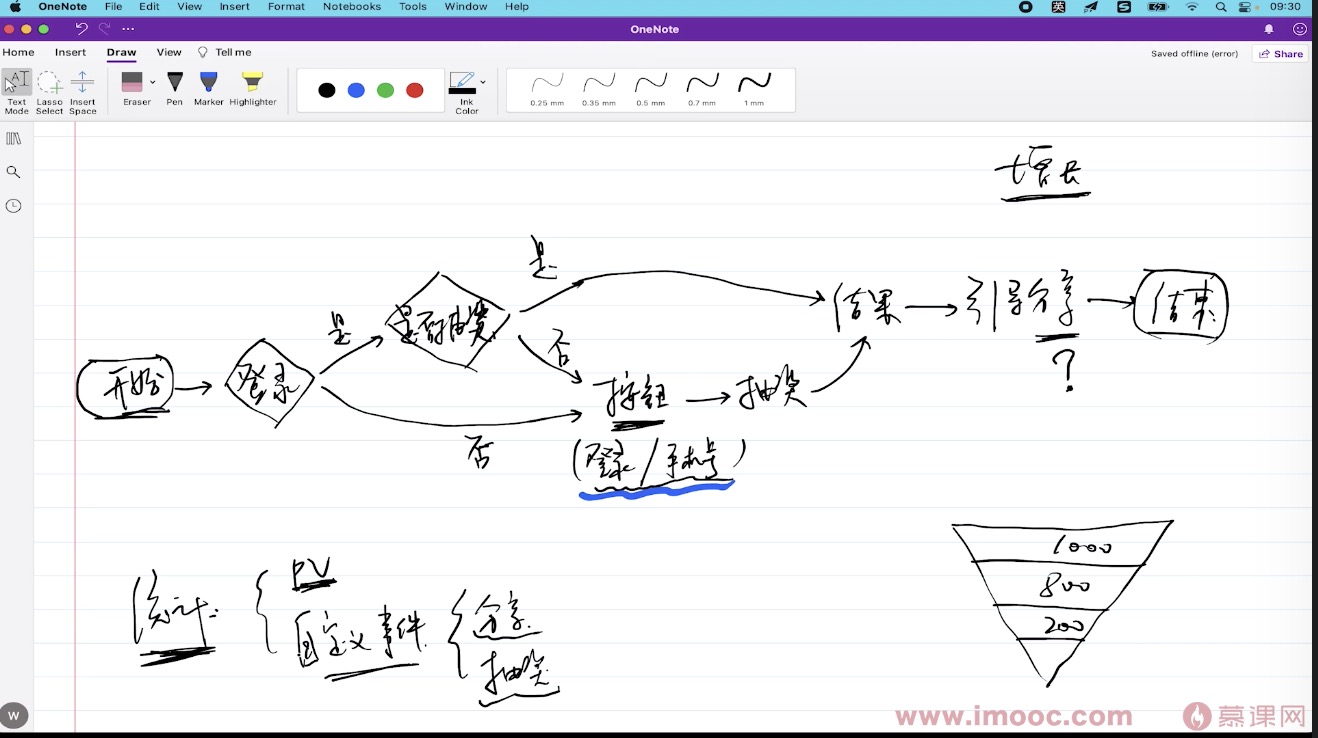 OneNote File Edit View Insert Format Notebooks Tools Window Help 英 S 09:30
OneNote
Home Insert Draw View Tell me Saved offline (error) Share
Text Mode
Lasso Select
Insert Space
Eraser
Pen
Marker
Highlighter
Ink Color
0.25 mm 0.35 mm 0.5 mm 0.7 mm 1 mm
增长
是
是
是否抽奖
否
结果
引导分享
结束
?
开始
登录
按钮
抽奖
否
(登录/手机号)
1000
800
200
统计:
PV
自定义事件
分享
抽奖
W
www.imooc.com
慕课网